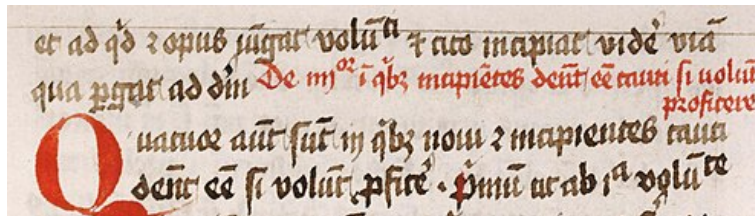 et ad q̓d ⁊ opus jūgat volūᵗⁱ ⁊ cito incipiat videˀ viā
qua ꝑgat ad dm̄ De iiijᵒʳ ī q̓bꝫ incipiētes debēt eē cauti si volūt
proficere
Quatuor aūt sūt in q̓bꝫ noui ⁊ incipientes cauti
debēt eē si volūt ꝓficeˀ . P̓mū ut ab iᵃ volūᵗᵉ